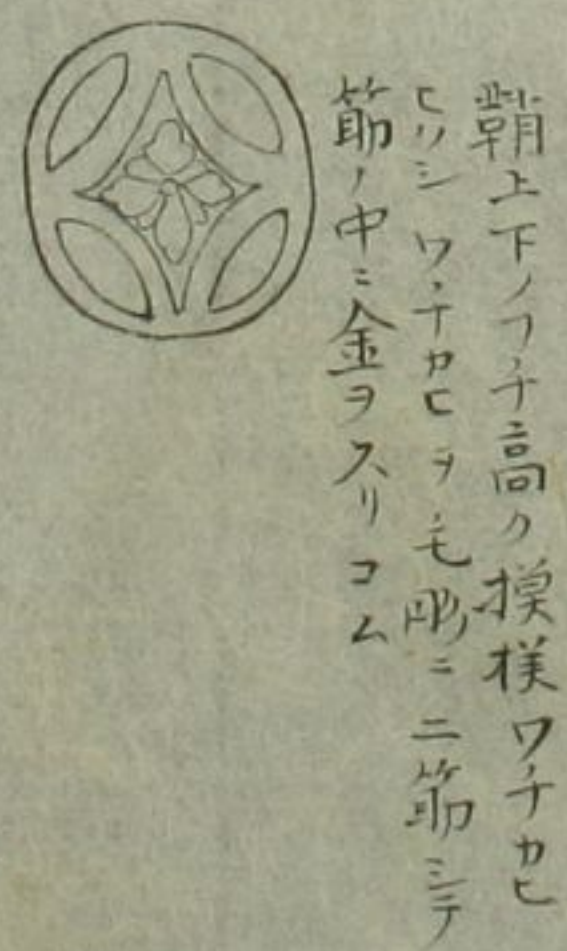 鞘上下ノフチ高ク摸様ワチカヒ
ヒシ ワチカヒヲ毛彫ニ二筋シテ
筋ノ中ニ金ヲスリコム